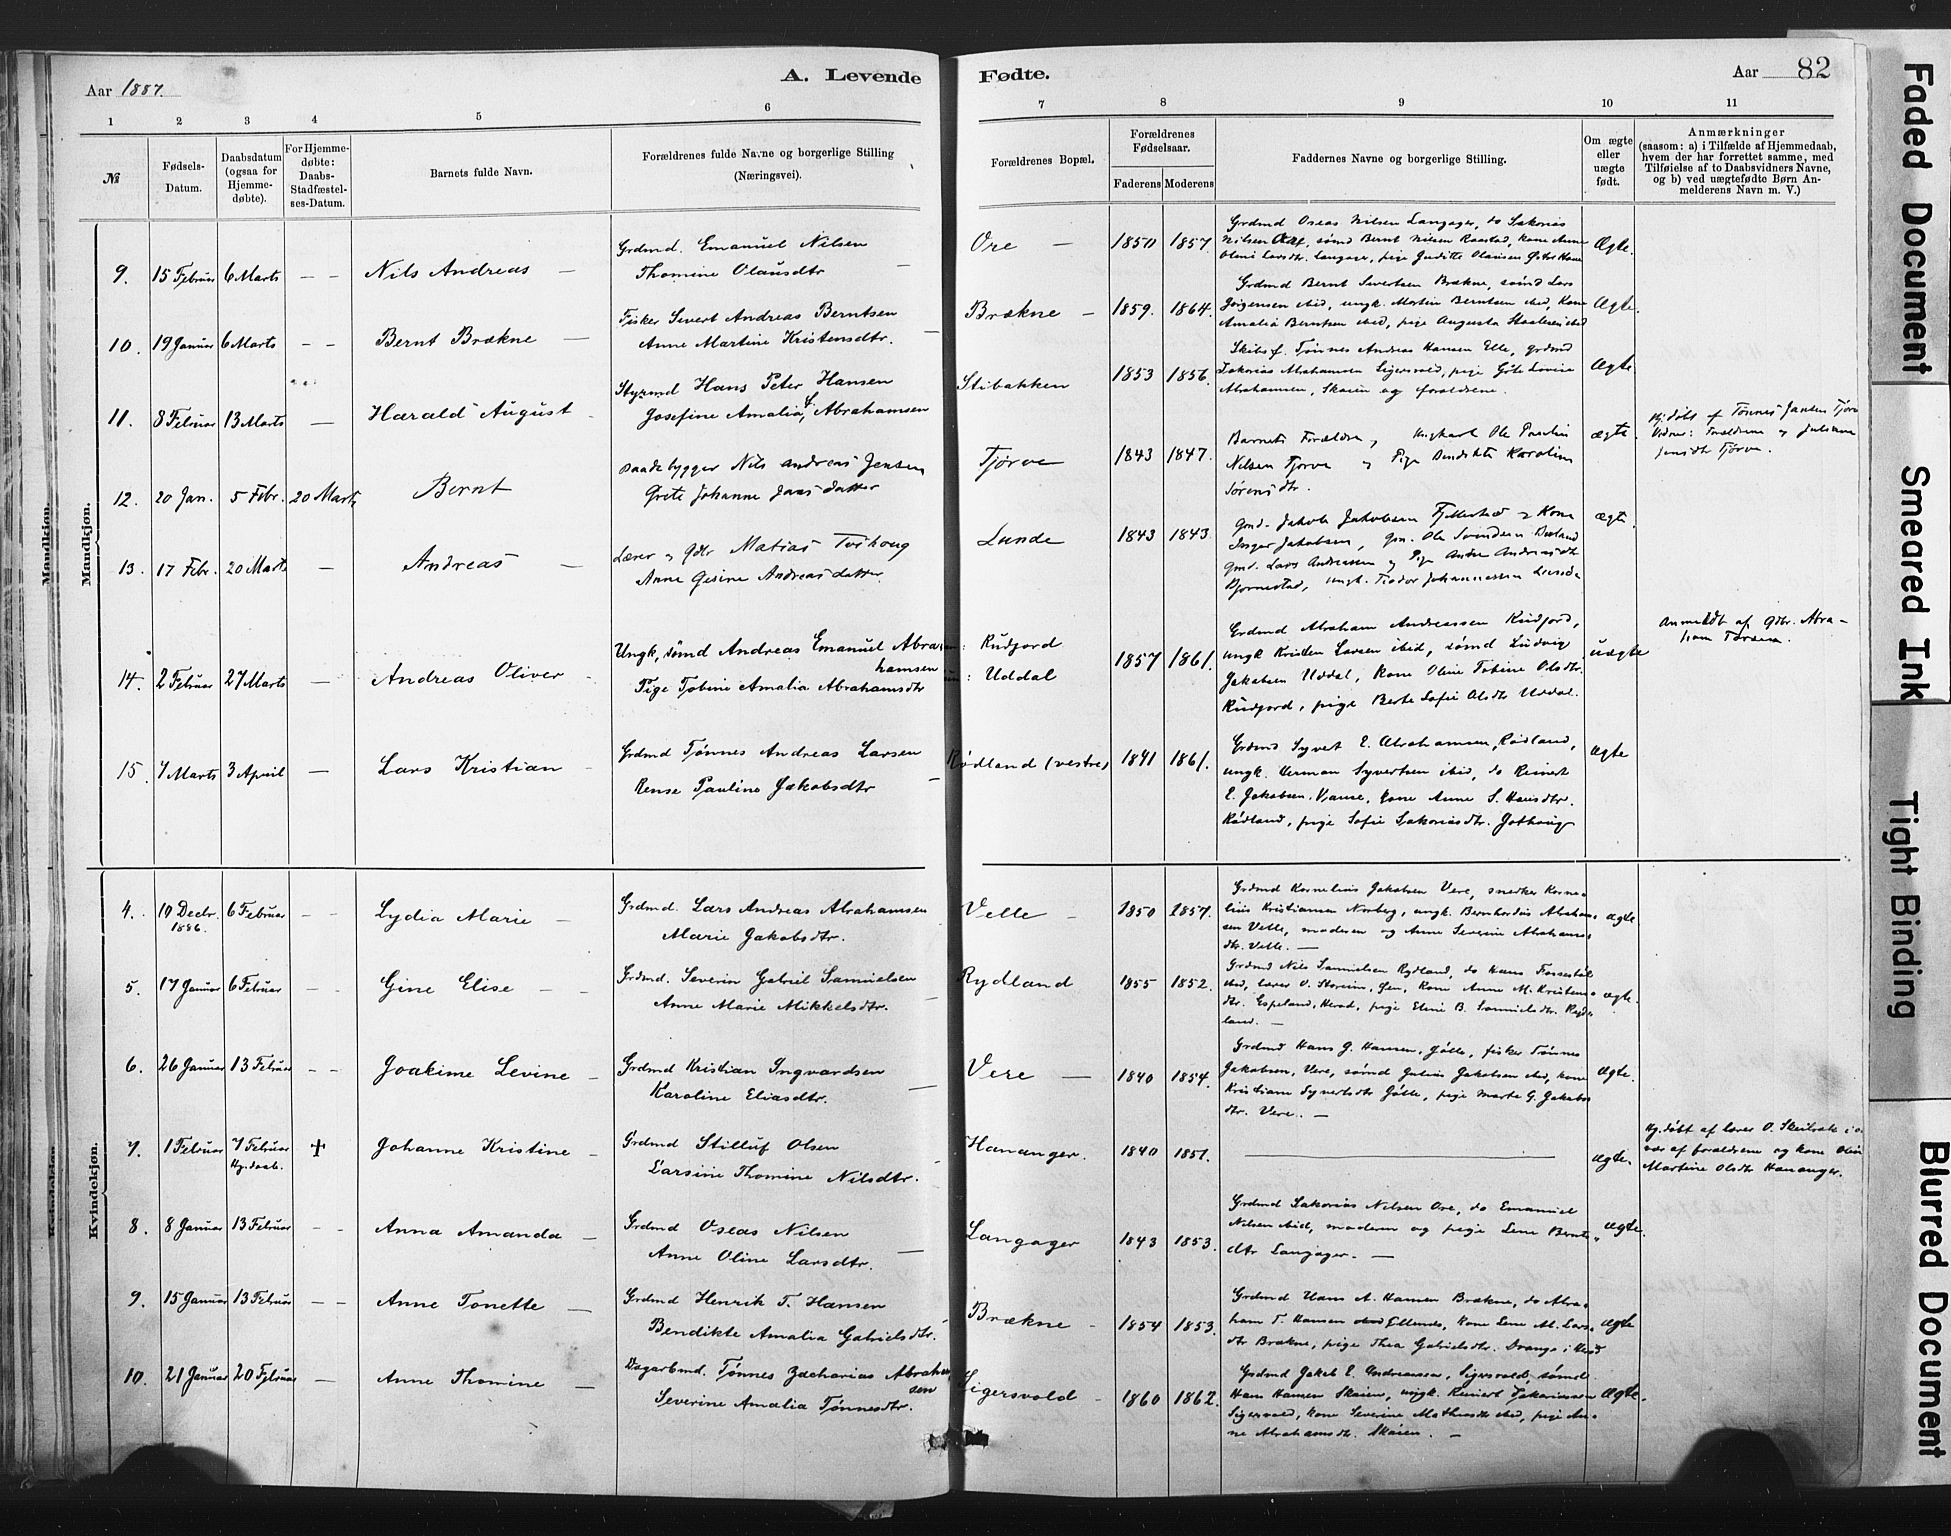 Aar 1887.
A. Levende
Fødte.
Aar
82
1 2 3 4 5 6
7 8 9 10 11
№
Fødsels-
Datum.
Daabsdatum
(ogsaa for
Hjemme-
døbte).
For Hjemme-
døbte:
Daabs-
Stadfæstel-
ses-Datum.
Barnets fulde Navn.
Forældrenes fulde Navne og borgerlige Stilling
(Næringsvei).
Forældrenes Bopæl.
Forældrenes
Fødselsaar.
Faderens Moderens
Faddernes Navne og borgerlige Stilling.
Om ægte
eller
uægte
født.
Anmærkninger
(saasom: a) i Tilfælde af Hjemmedaab,
hvem der har forrettet samme, med
Tilføielse af to Daabsvidners Navne,
og b) ved uægtefødte Børn An-
melderens Navn m. V.)
Mandkjøn.
Mandkjøn.
9. 15 Februar 6 Marts – – Nils Andreas –
Grdmd. Emanuel Nilsen
Thomine Olausdtr –
Ore – 1850 1857
Grdmd Oseas Nilsen Langager, do Sakorias
Nilsen Ore, sømd Bernt Nilsen Raastad, kone Anne
Olini Larsdtr. Langager, pige
Ægte.
10. 19 Januar 6 Marts – – Bernt Brækne –
Fisker Sivert Andreas Berntsen
Anne Martine Kristensdtr. –
Brækne – 1859. 1864.
Grdmd Bernt Sivertsen Brækne, sømd Lars
Jørgensen ibid, ungk. Martin Berntsen ibid, Kone
Amalia Berntsen ibid, pige Augusta
Ægte.
11. 8 Februar 13 Marts – Harald August –
Styrmd Hans Peter Hansen
Josefine Amalia Abrahamsen
Stibakken 1853 1856.
Skibsf. Tønnes Andreas Hansen Elle, grdmd
Sakorias Abrahamsen Sigersvold, pige Gøte Lovise
Abrahamsen, Skaien og forældrene.
Ægte.
12. 20 Jan. 5 Febr. 20 Marts Bernt
Baadebygger Nils Andreas Jensen
Grete Johanne Jansdatter
Tjørve 1843 1847.
Barnets Forældre, Ungkarl Ole Paulin
Nilsen Tjørve og Pige Bendikte Karoline
Sørensdtr.
ægte.
Hj.døbt af Tønnes Jansen Tjørve
Vidner: Forældrene og Juliane
Jensdtr Tjørve.
13. 17 Febr. 20 Marts – Andreas –
Lærer og Gdbr Matias Tvihoug
Anne Gesine Andreasdatter
Lunde 1843 1843
Gmd. Jakob Jakobsen Fjellestad og Kone
Inger Jakobsen, Gm. Ole Svendsen
Gmd. Lars Andreassen og Pige Andreasdtr
Bjørnestad, ungk. Teodor Johannessen Lunde
ægte
14. 2 Februar 27 Marts – Andreas Oliver –
Ungk, sømd Andreas Emanuel Abra-
hamsen
Pige Tobine Amalia Abrahamsdtr
Rudjord
Uddal
1857 1861.
Grdmd Abraham Andreassen Rudjord,
ungk Kristen Larsen ibid, sømd Ludvig
Jakobsen Uddal, Kone Oline Tobine Olsdtr.
Rudjord, pige Berte Sofie Olsdtr Uddal.
uægte
Anmeldt af Gdbr. Abra-
ham
15. 7 Marts 3 April – Lars Kristian –
Grdmd Tønnes Andreas Larsen
Rense Pauline Jakobsdtr –
Rødland (vestre) 1841 1861.
Grdmd Syvert E. Abrahamsen, Rødland,
ungk. Herman Syvertsen ibid, do Reinert
E. Jakobsen, Vanse, kone Anne S. Hansdtr.
Rødland, pige Sofie Sakoriasdtr. Jøthoug
Ægte
Kvindekjøn.
Kvindekjøn.
4. 10 Decbr. 1886. 6 Februar – – Lydia Marie –
Grdmd. Lars Andreas Abrahamsen
Marie Jakobsdtr.
Velle – 1850 1857.
Grdmd Kornelius Jakobsen Vere, snedker Korne-
lius Kristiansen Norberg, ungk. Bernhardus Abraham-
sen Velle, moderen og Anne Severine Abrahams-
dtr. Velle. –
ægte
5. 17 Januar 6 Februar – – Gine Elise –
Grdmd. Severin Gabriel Samuelsen
Anne Marie Mikkelsdtr. –
Rydland 1855 1852.
Grdmd Nils Samuelsen Rydland, do Hans Fossestøl
ibid, lærer O. Storeim, Øen, kone Anne M. Kristens-
dtr. Espeland, Herad, pige Elini B. Samuelsdtr. Ryd-
land. –
ægte.
6. 26 Januar 13 Februar – – Joakime Levine –
Grdmd Kristian Ingvardsen
Karoline Eliasdtr. –
Vere – 1840 1854.
Grdmd Hans G. Hansen, Jølle, fisker Tønnes
Jakobsen, Vere, sømd Julius Jakobsen ibid, kone
Kristiane Syvertsdtr Jølle, pige Marte G. Jakobs
dtr. Vere. –
Ægte.
7. 1 Februar 7 Februar Hj.daab. + Johanne Kristine –
Grdmd Stilluf Olsen
Larsine Thomine Nilsdtr.
Hananger. 1840 1851.
ægte.
Hj.døbt af lærer O. Skeibrok i
vær af forældrene og kone Olini
Martine Olsdtr Hananger.
8. 8 Januar 13 Februar – – Anna Amanda –
Grdmd Oseas Nilsen
Anne Oline Larsdtr. –
Langager 1843 1853.
Grdmd Sakorias Nilsen Ore, do Emanuel
Nilsen ibid, moderen og pige Lene Bernts-
dtr Langager. –
ægte.
9. 15 Januar 13 Februar – – Anne Tonette –
Grdmd Henrik T. Hansen
Bendikte Amalia Gabrielsdtr.
Brækne – 1854 1853.
Grdmd Hans A. Hansen Brækne, do Abra-
ham T. Hansen Ellenes, kone Lene M. Lars-
dtr Brækne, pige Thea Gabrielsdtr. Drange i Herad
ægte
10. 21 Januar 20 Februar – Anne Thomine –
Dagarbmd. Tønnes Zacharias Abraham-
sen
Severine Amalia Tønnesdtr.
Sigersvold – 1860 1862.
Grdmd Jakob E. Andreassen, Sigersvold, sømd.
Hans Hansen Skaien, ungk. Reinert Zakariassen
Sigersvold, kone Severine Mathiasdtr ibid, pige An-
ne Abrahamsdtr. Skaien. –
ægte.
Faded Document
Smeared Ink
Tight Binding
Blurred Document